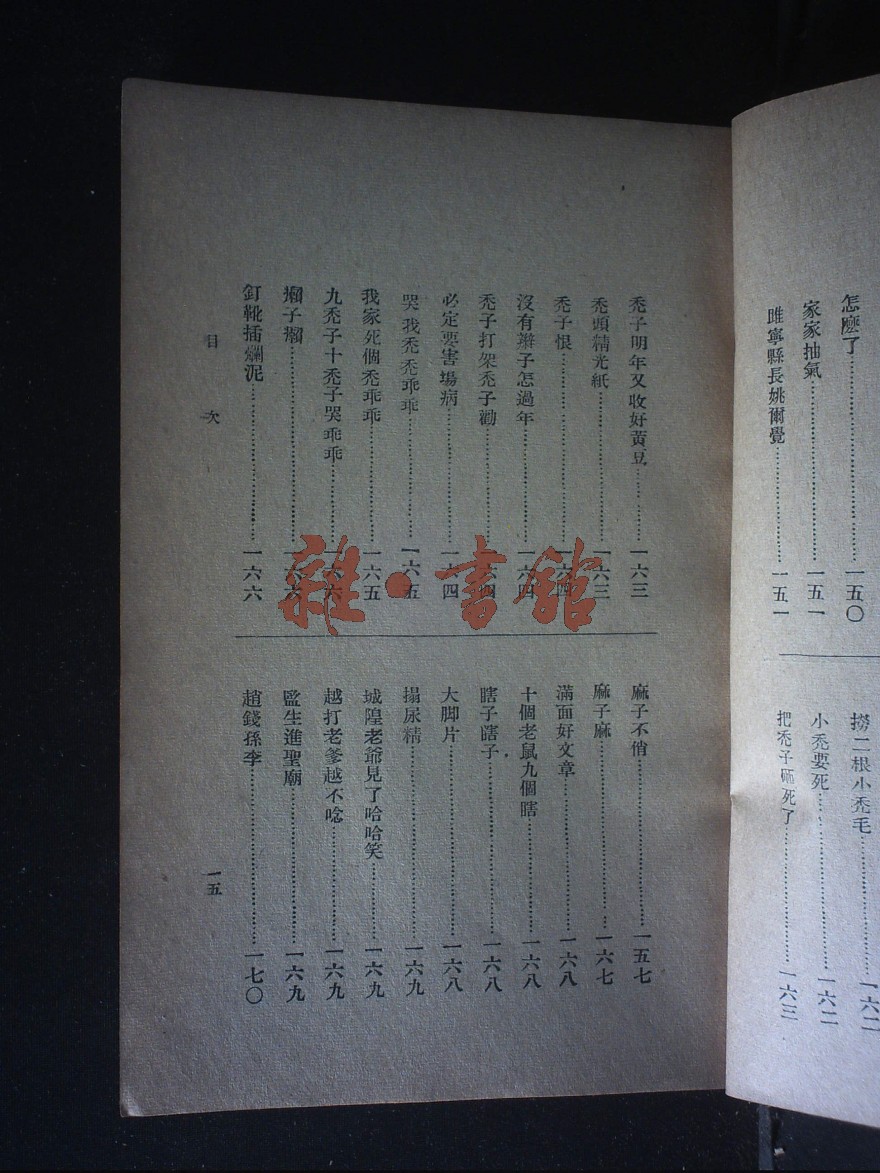 怎麽了……一五〇
家家抽氣……一五一
睢寧縣長姚爾覺……一五一
撈二根小禿毛……一六二
小禿要死……一六二
把禿子砸死了……一六三
禿子明年又收好黃豆……一六三
禿頭精光紙……一六三
禿子恨……一六四
沒有辮子怎過年……一六四
禿子打架禿子勸……一六四
必定要害場病……一六四
哭我禿禿乖乖……一六五
我家死個禿乖乖……一六五
九禿子十禿子哭乖乖……一六六
癩子癩……一六六
釘靴插爛泥……一六六
麻子不俏……一五七
麻子麻……一六七
滿面好文章……一六八
十個老鼠九個瞎……一六八
瞎子瞎子……一六八
大脚片……一六八
搨尿精……一六九
城隍老爺見了哈哈笑……一六九
越打老爹越不唸……一六九
監生進聖廟……一六九
趙錢孫李……一七〇
目次
一五
雜·書館